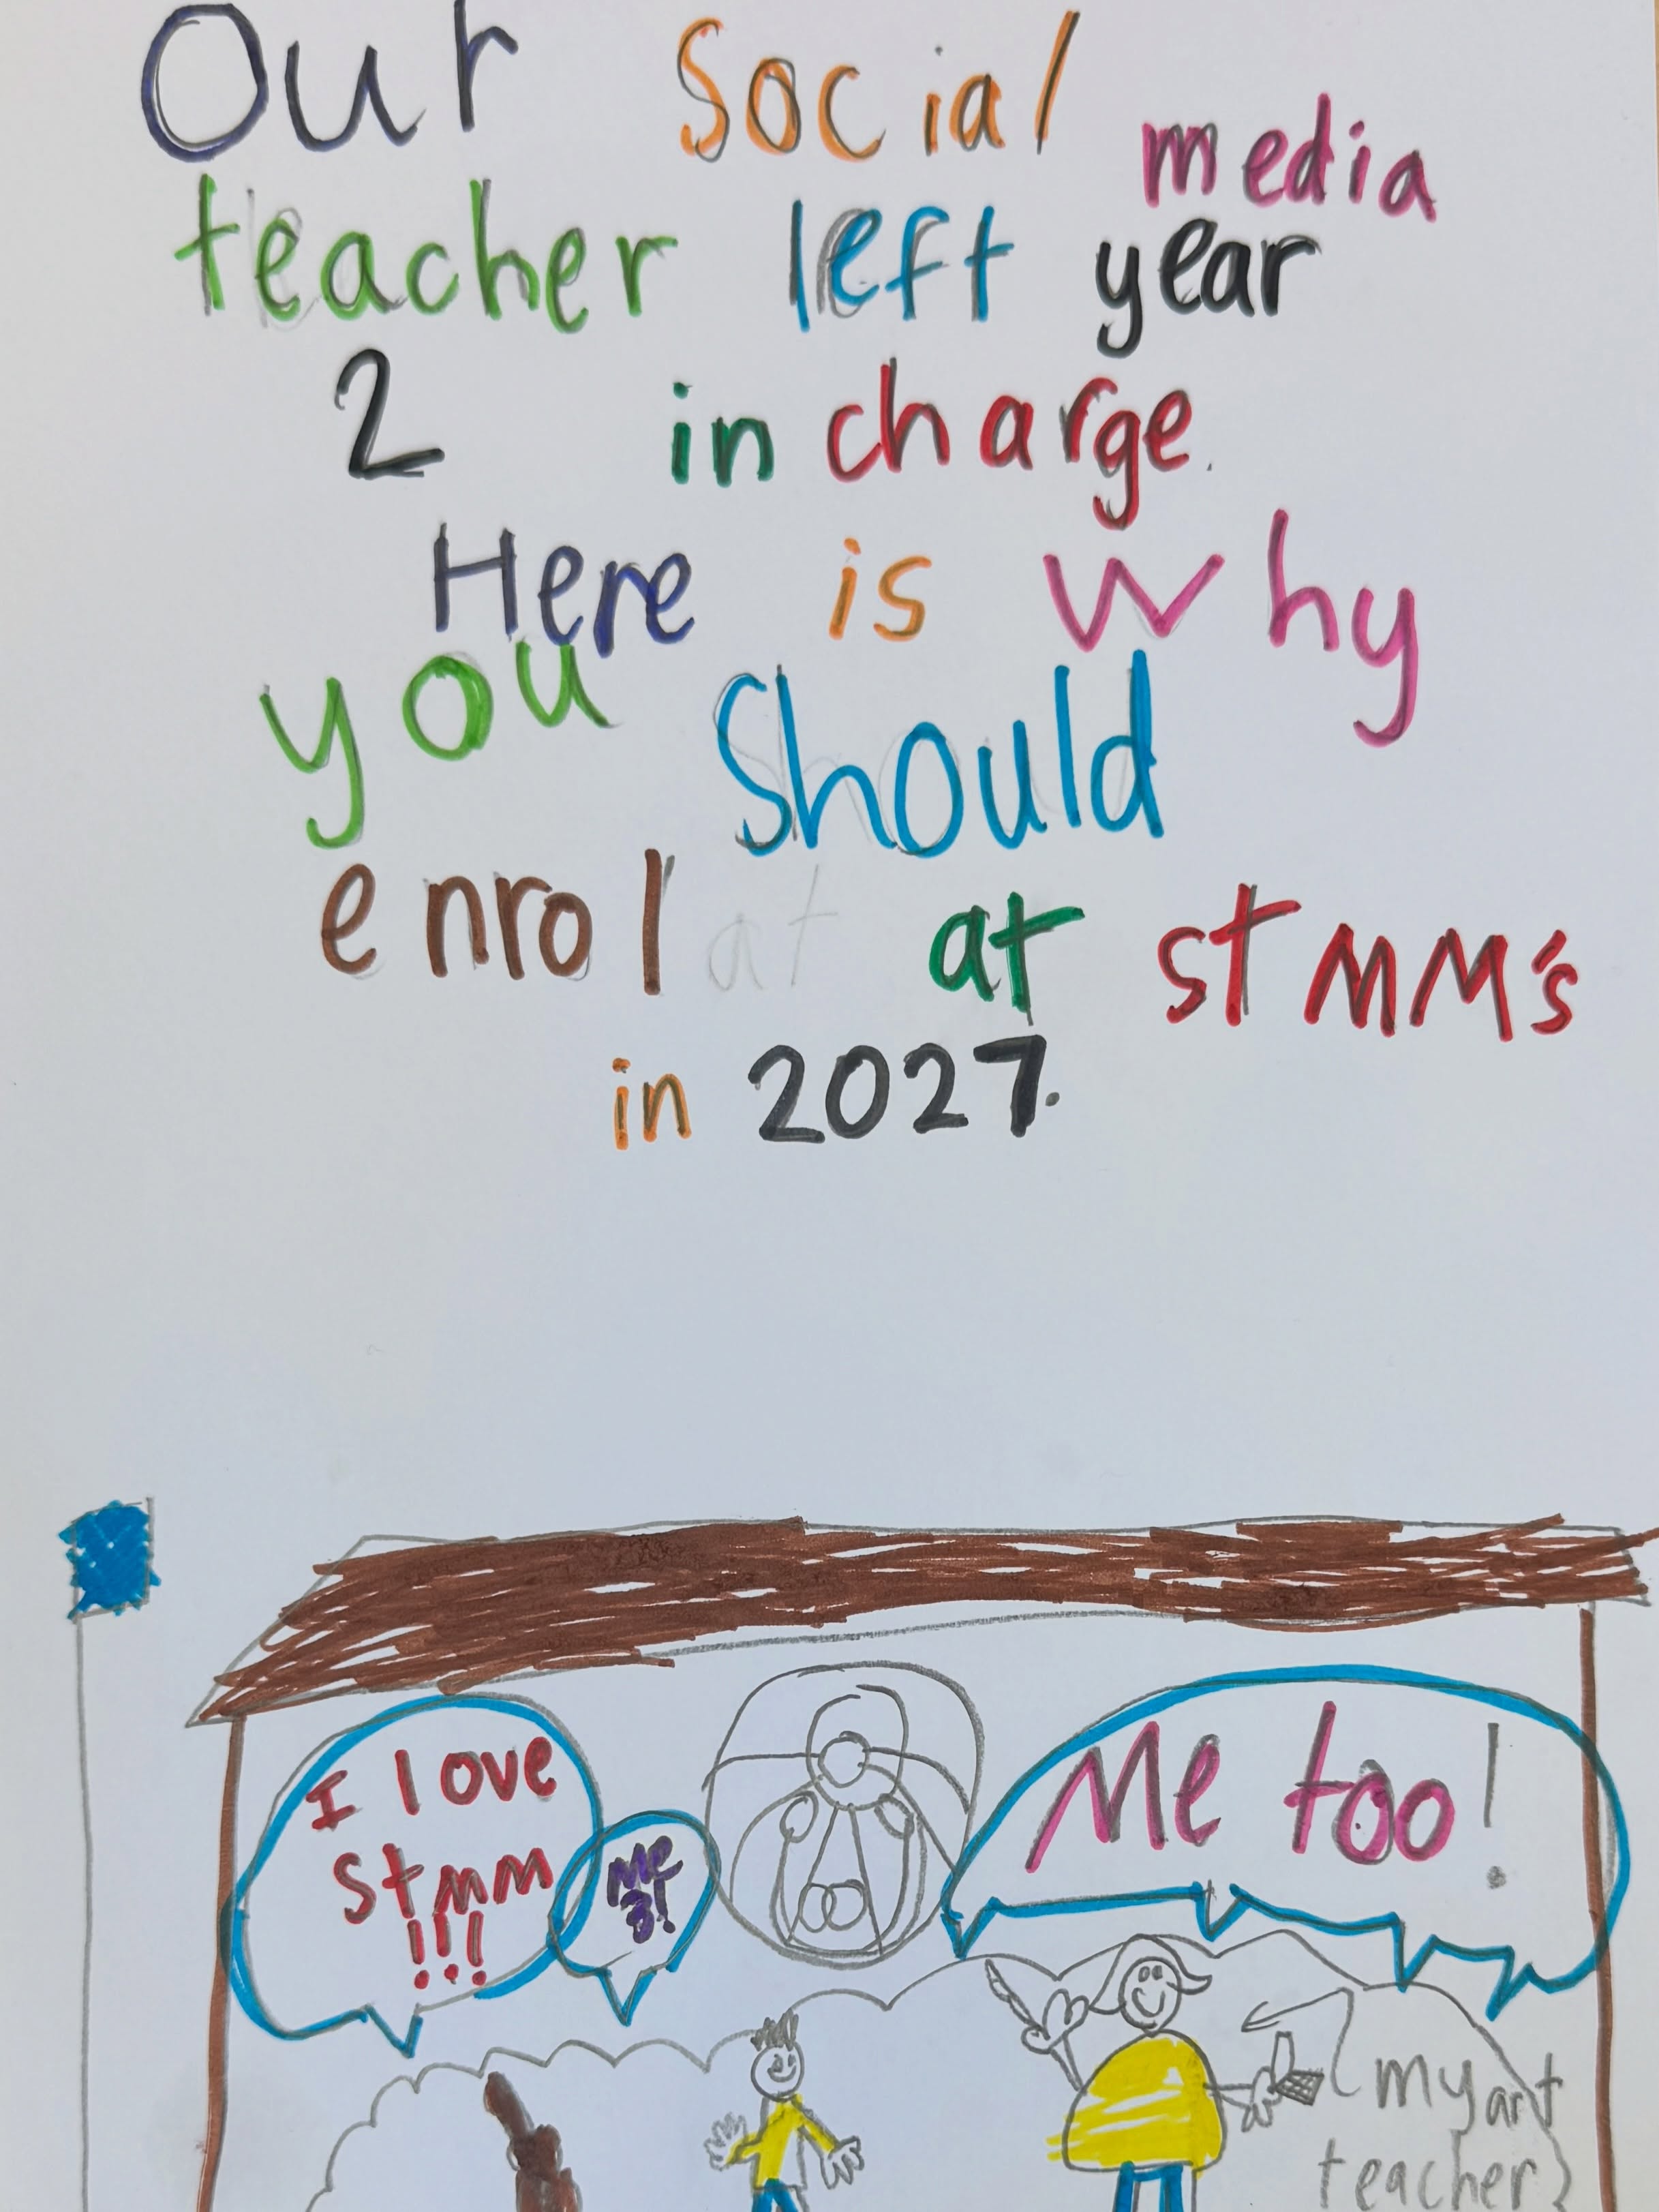 Our Social media
teacher left year
2 in charge.
Here is why
you should
enrol at at st MM's
in 2027.
I love
St MM
!!!
Me
3!
Me too!
my art
teacher